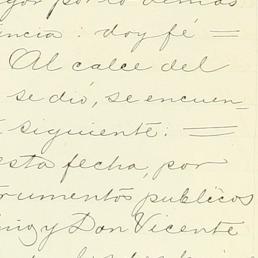 por lo demás
encia: doy fé =
Al calce del
se dió, se encuen-
siguiente: =
esta fecha, por
trumentos publicos
y Don Vicente